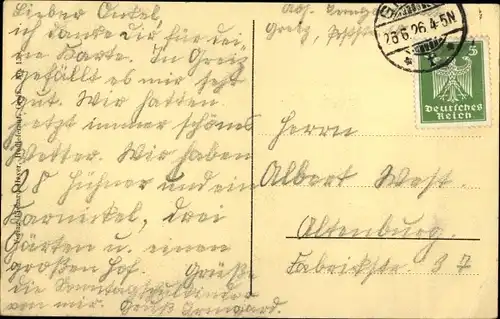 Lieber Onkel,
ich danke Dir für dei-
ne Karte. In Greiz
gefällt es mir sehr
gut. Wir hatten
jetzt immer schönes
Wetter. Wir haben
18 Hühner und ein
Karnickel, drei
Gärten u. einen
großen Hof. Grüße
die Sonntagsschulkinder
von mir. Gruß Irmgard.
Abs. Irmgard
Greiz,
23.6.26.4-5N
5
Deutsches
Reich
Herrn
Albert West.
Altenburg.
Fabrikstr. 37